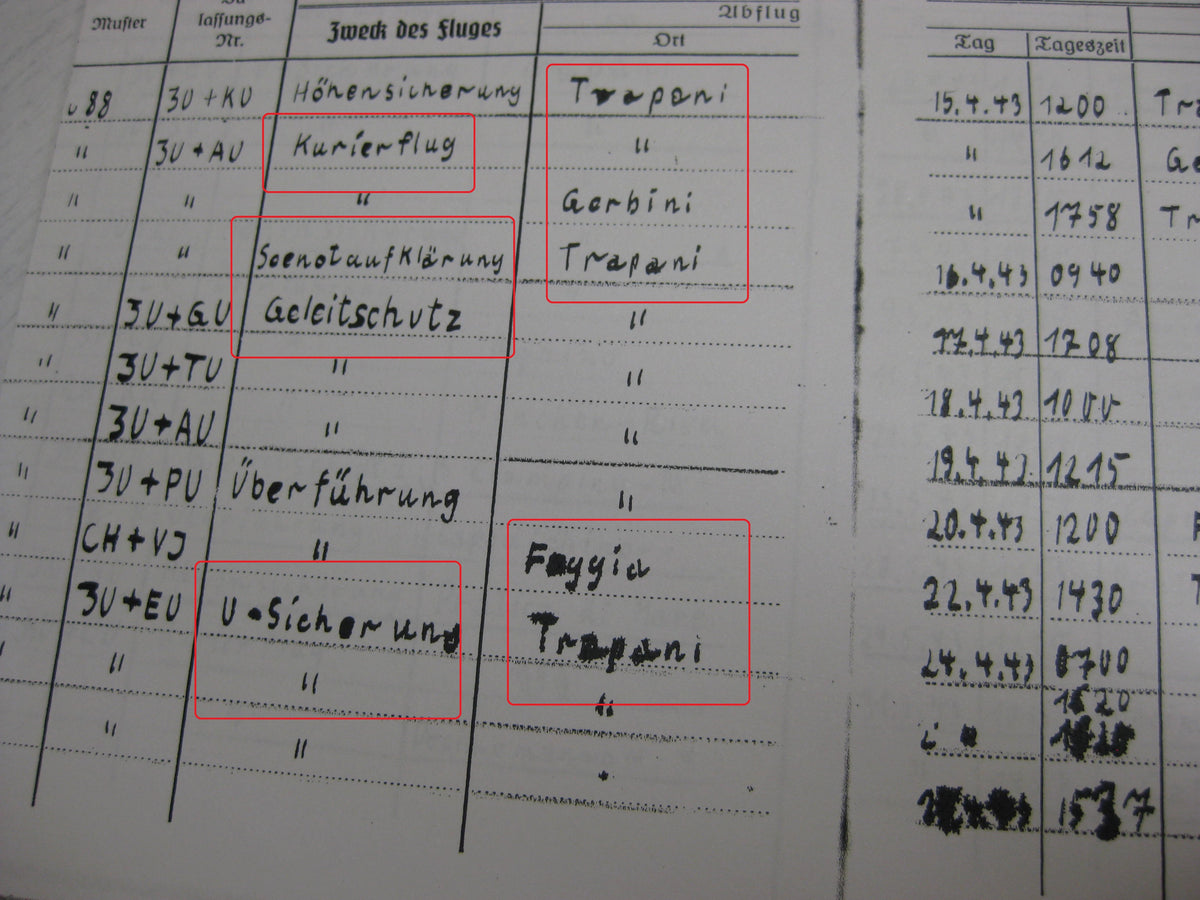 Abflug
Muster Zulassungs-Nr. Zweck des Fluges Ort Tag Tageszeit
88 3U+KU Höhensicherung Trapani 15.4.43 1200 Tra
" 3U+AU Kurierflug " " 1612 Ge
" " " Gerbini " 1758 Tr
" " Seenotaufklärung Trapani 16.4.43 0940
" 3U+GU Geleitschutz " 17.4.43 1708
" 3U+TU " " 18.4.43 1000
" 3U+AU " " 19.4.43 1215
" 3U+PU Überführung " 20.4.43 1200
" CH+VJ " Foggia 22.4.43 1430
" 3U+EU U-Sicherung Trapani 24.4.43 0700
" " " " 1520
" "